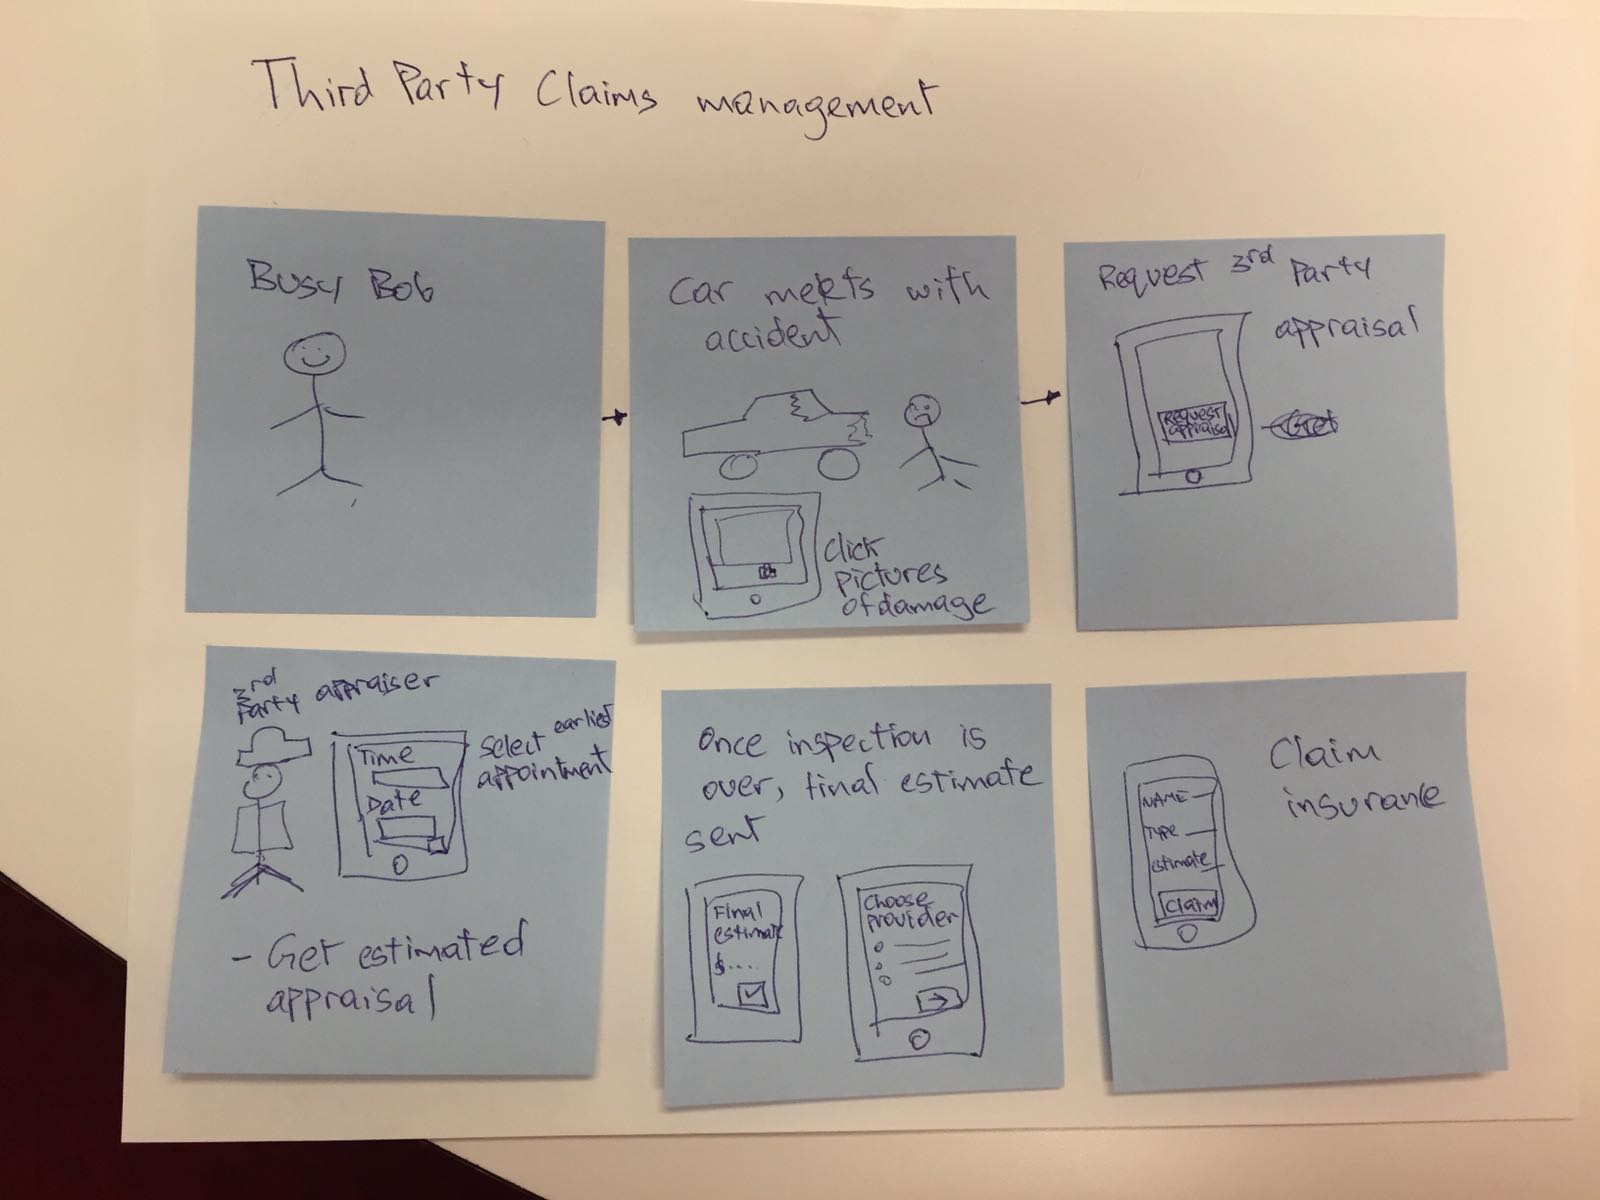 Third Party Claims management
Busy Bob
Car meets with
accident
Click
pictures
of damage
Request 3rd Party
appraisal
Request
appraisal
3rd
Party appraiser
Time
Date
Select earliest
appointment
- Get estimated
appraisal
Once inspection is
over, final estimate
sent
Final
estimate
$....
Choose
provider
Claim
insurance
NAME
TYPE
estimate
Claim